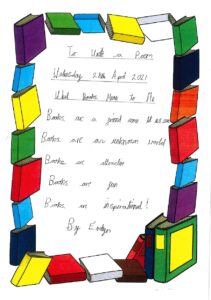 To Write a Poem
Wednesday 28th April 2021
What Books Mean To Me
Books are a good
Books are an unknown world
Books are
Books are fun
Books are inspirational!
By